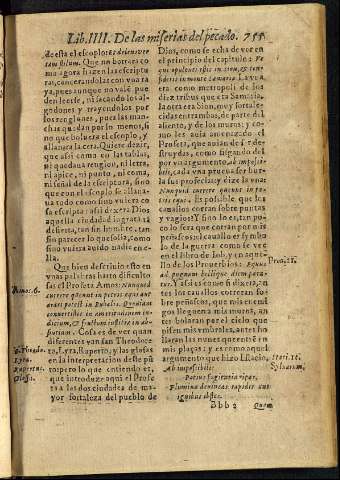 Lib. IIII. De las miserias del pecado. 755
de esta el escoplo: et delens vertam
Que no bottara co
mo agora hazen las escriptu
ras, cancerandolas con vna ra
ya, pues aunque no vale pue
den leerse, ni sacando los al-
godones y trayendolos por
los renglones, pues las man-
chas quedan por lo menos, si
no que boluera el escoplo, y
allanara la cera. Quiere dezir,
que assi como en las tablas,
ni quedaua renglon, ni letra,
ni apice, ni punto, ni coma,
ni señal de la escriptora, sino
que con el escoplo estaua to
do llano como sino vuiera co
sa escripta: assi dexara Dios
aquella ciudad lograta
desierta, tan sin hombre, tan
sin parecer lo que solia, como
sino vuiera auido nadie en
ella.
Que bien descriuio esto en
vnas palabras harto dificulto
sas el Profeta Amos: Nunquid
currere queunt in petris equi aut
arari potest in bubalis. Quoniam
conuertistis in amaritudinem in-
dicium, & fructum iustitiæ in ab-
sinthium. Cosa es de ver quan
diferentes van san Theodore-
to, Lyra, Ruperto, y las glosas
en la interpretacion deste pū
to: pero lo que entiendo es,
que introduze aqui el Profe-
ta a las dos ciudades de ma-
yor fortaleza del pueblo de
Amos. 6.
Theodo.
Lyra.
Rupertus.
Glossa.
Dios, como se echa de ver en
el principio del capitulo: Væ
qui opulenti estis in Sion, et confi-
ditis in monte Samariæ. La vna
era como metropoli de los
diez tribus que era Samaria,
la otra era Sion, muy fortale-
cidas entrambas, de parte del
aliento, y de los muros: y co-
mo les auia amenaçado el
Profeta, que auian de ser de-
struydas, como fisgando del
por via argumento, ab impossi-
bili, cada vna prueua ser bur-
la sus profecias; y dize la vna:
Nunquid currere queunt in pe-
tris equi? Es posible que los
cauallos corran sobre puntas
y riscos? Y sino lo es, tan po-
co lo sera que corran por mis
peñascos, es el cauallo symbo
lo de la guerra como se ve
en el libro de Iob, y en aque-
lla de los Prouerbios: Equus
ad pugnam bellique diem para-
tur. Y assi es como si dixera, an
tes los cauallos correran so-
bre peñascos, que mis enemi
gos lleguen a mis muros, an-
tes bolaran por el cielo que
pisen mis vmbrales, antes ho
llaran las nuues que entrē en
mis plaças; y es como aquel
argumento que hizo Estacio,
Ab impossibili:
Potius fugientia ripas,
Flumina deuincas rapidis aut
ignibus obstes.
Pro. 21.
Stati. in
Syluarum.
Bbb 2 Quem